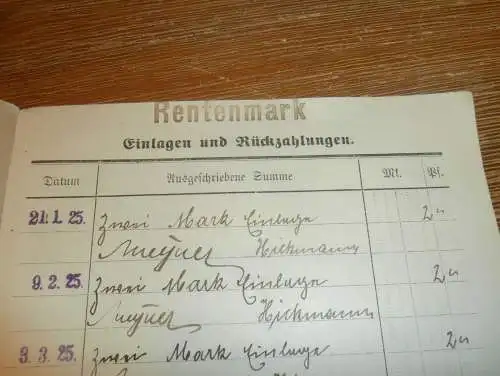 Rentenmark
Einlagen und Rückzahlungen.
Datum Ausgeschriebene Summe M. Pf.
21.1.25. Zwei Mark Einlage 2,"
Meyner Hickmann
9.2.25. Zwei Mark Einlage 2,"
Meyner Hickmann
3.3.25. Zwei Mark Einlage 2,"